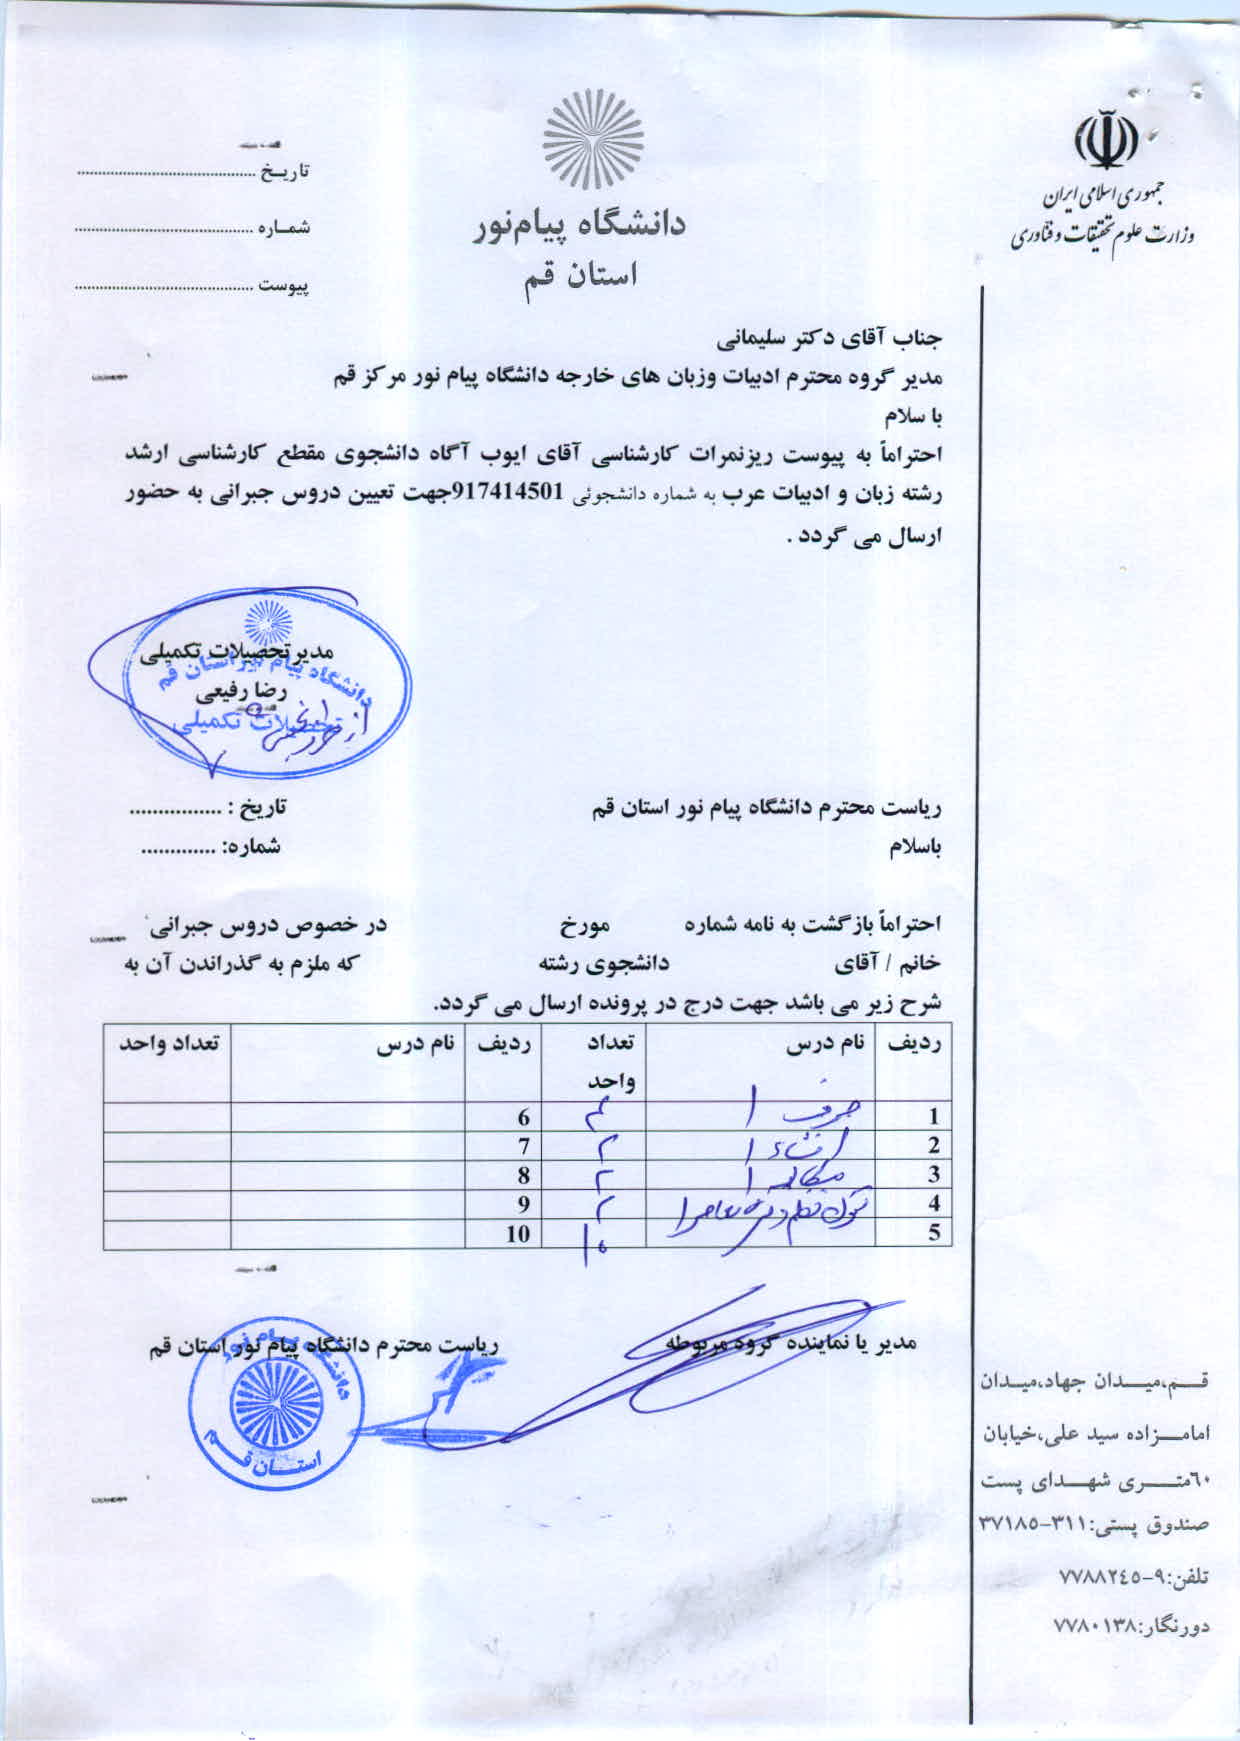 جمهوری اسلامی ایران
وزارت علوم تحقیقات و فناوری
دانشگاه پیام‌نور
استان قم
تاریخ ........................................
شماره ........................................
پیوست ........................................
جناب آقای دکتر سلیمانی
مدیر گروه محترم ادبیات وزبان های خارجه دانشگاه پیام نور مرکز قم
با سلام
احتراماً به پیوست ریزنمرات کارشناسی آقای ایوب آگاه دانشجوی مقطع کارشناسی ارشد
رشته زبان و ادبیات عرب به شماره دانشجوئی 917414501جهت تعیین دروس جبرانی به حضور
ارسال می گردد .
مدیرتحصیلات تکمیلی
رضا رفیعی
دانشگاه پیام نور استان قم
تحصیلات تکمیلی
ریاست محترم دانشگاه پیام نور استان قم تاریخ : ................
باسلام شماره: .............
احتراماً بازگشت به نامه شماره مورخ در خصوص دروس جبرانی
خانم / آقای دانشجوی رشته که ملزم به گذراندن آن به
شرح زیر می باشد جهت درج در پرونده ارسال می گردد.
ردیف نام درس تعداد واحد ردیف نام درس تعداد واحد
1 صرف ۱ ۴ 6
2 انشاء ۱ ۲ 7
3 مکالمه ۱ ۲ 8
4 نظم و نثر معاصر ۱ ۲ 9
5 ۱۰ 10
مدیر یا نماینده گروه مربوطه ریاست محترم دانشگاه پیام نور استان قم
دانشگاه پیام نور
استان قم
قم،میدان جهاد،میدان
امامزاده سید علی،خیابان
٦٠متری شهدای پست
صندوق پستی:٣١١-٣٧١٨٥
تلفن:٩-٧٧٨٨٢٤٥
دورنگار:٧٧٨٠١٣٨